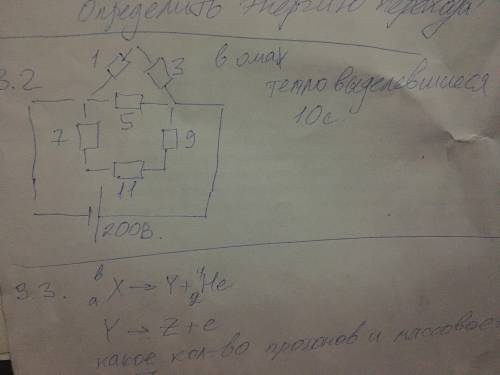 Определить энергию перехода
3.2
1
3
в омах
тепло выделевшиеся
10с.
5
7
9
11
200В.
3.3. ᵇₐX → Y + ⁴₂He
Y → Z + e
какое кол-во протонов и массовое